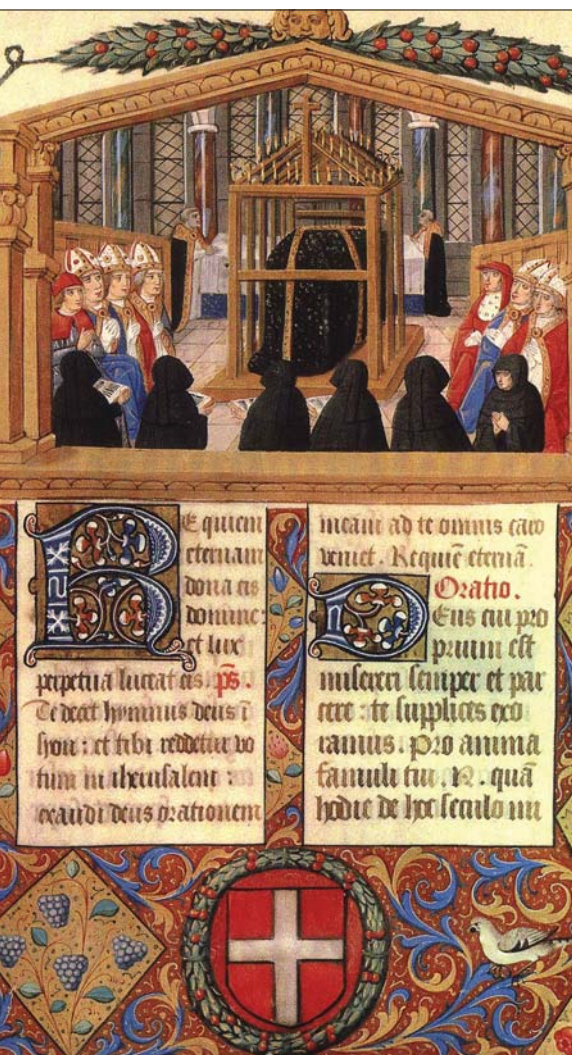 Requiem
eternam
dona eis
domine:
et lux
perpetua luceat eis p̄s.
Te decet hymnus deus ī
syon: et tibi reddetur vo
tum in iherusalem:
exaudi deus orationem
meam ad te omnis caro
veniet. Requiē eternā.
Oratio.
Deus cui pro
prium est
misereri semper et par
cere: te supplices exo
ramus. Pro anima
famuli tui .N. quā
hodie de hoc seculo mi